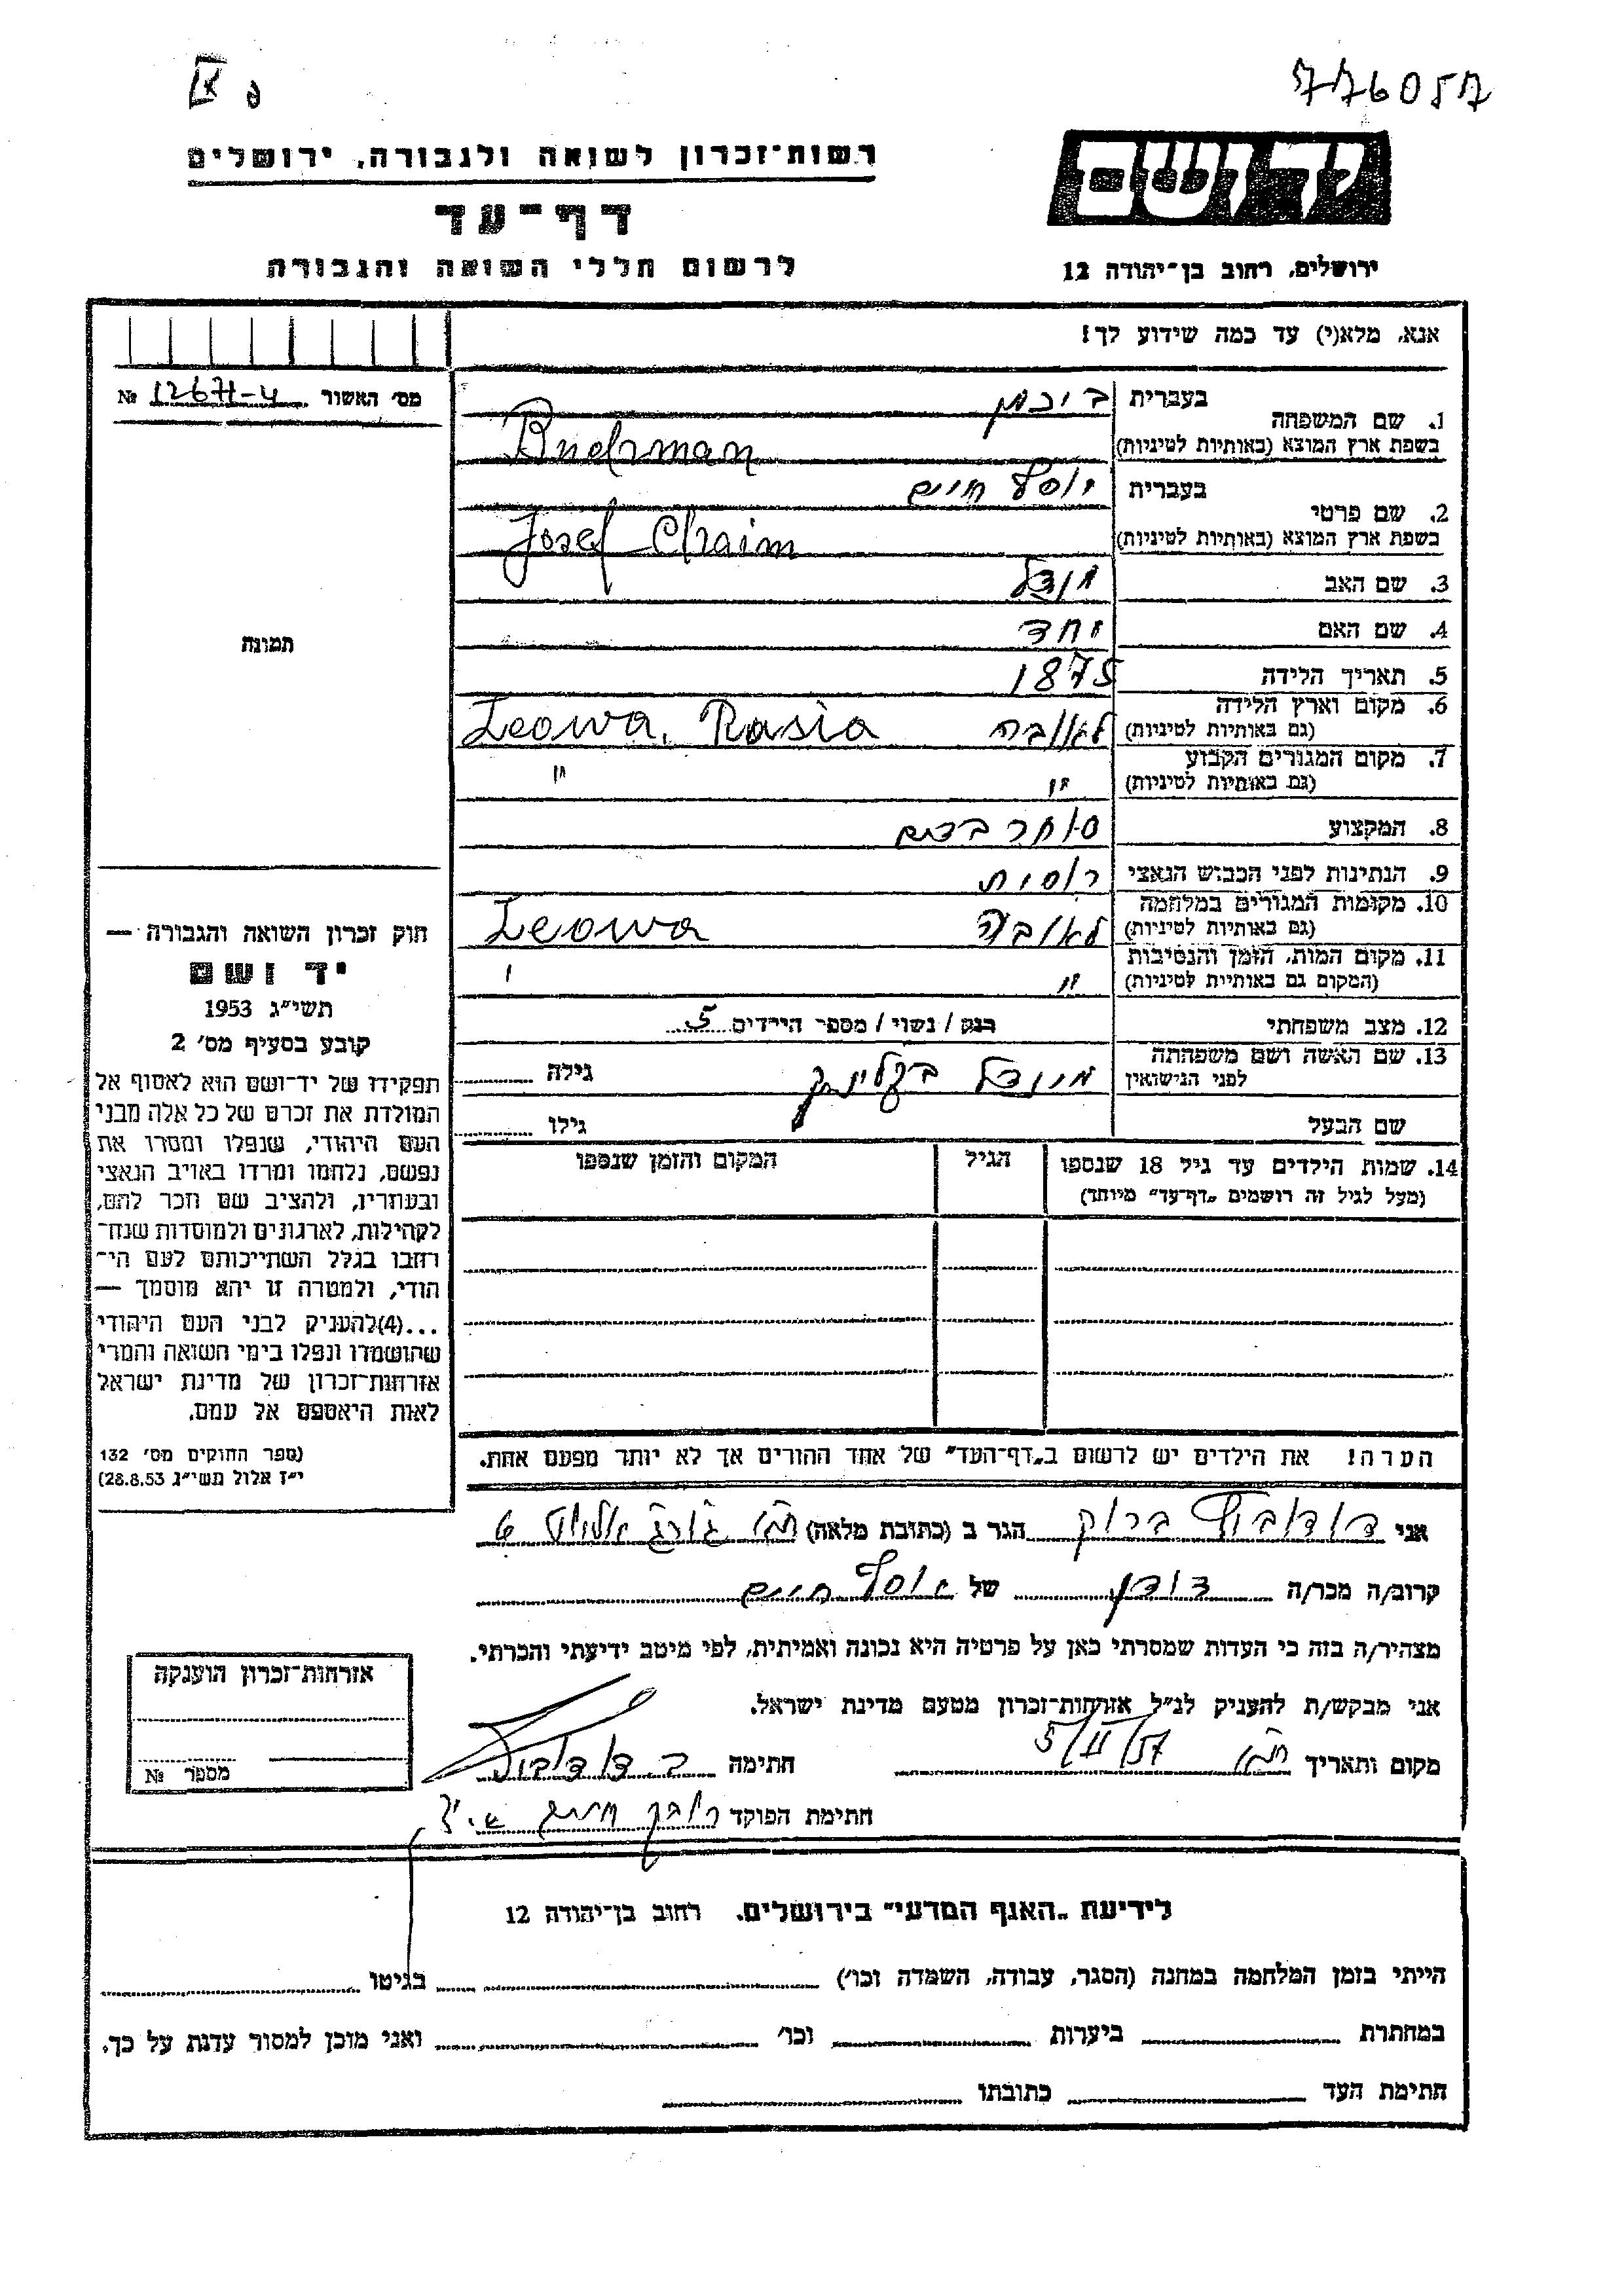 776057
רשות־זכרון לשואה ולגבורה, ירושלים
דף־עד
לרשום חללי השואה והגבורה
יד ושם
ירושלים, רחוב בן־יהודה 12
אנא, מלא(י) עד כמה שידוע לך!
מס׳ האשור 12671-4 №
תמונה
1. שם המשפחה
בעברית בוכמן
בשפת ארץ המוצא (באותיות לטיניות) Buchman
2. שם פרטי
בעברית יוסף חיים
בשפת ארץ המוצא (באותיות לטיניות) Josef Chaim
3. שם האב
4. שם האם
5. תאריך הלידה 1875
6. מקום וארץ הלידה
(גם באותיות לטיניות) לאובה Leowa, Rasia
7. מקום המגורים הקבוע
(גם באותיות לטיניות) " "
8. המקצוע סוחר בדים
9. הנתינות לפני הכבוש הנאצי רוסית
10. מקומות המגורים במלחמה
(גם באותיות לטיניות) לאובה Leowa
11. מקום המות, הזמן והנסיבות
(המקום גם באותיות לטיניות) "
12. מצב משפחתי רווק / נשוי / מספר הילדים 5
13. שם האשה ושם משפחתה
לפני הנישואין גילה
שם הבעל גילו
14. שמות הילדים עד גיל 18 שנספו
(מעל לגיל זה רושמים „דף־עד״ מיוחד)
הגיל
המקום והזמן שנספו
הערה! את הילדים יש לרשום ב„דף־העד״ של אחד ההורים אך לא יותר מפעם אחת.
חוק זכרון השואה והגבורה —
יד ושם
תשי״ג 1953
קובע בסעיף מס׳ 2
תפקידו של יד־ושם הוא לאסוף אל
המולדת את זכרם של כל אלה מבני
העם היהודי, שנפלו ומסרו את
נפשם, נלחמו ומרדו באויב הנאצי
ובעוזריו, ולהציב שם וזכר להם,
לקהילות, לארגונים ולמוסדות שנח־
רבו בגלל השתייכותם לעם הי־
הודי, ולמטרה זו יהא מוסמך —
...(4) להעניק לבני העם היהודי
שהושמדו ונפלו בימי השואה והמרי
אזרחות־זכרון של מדינת ישראל
לאות היאספם אל עמם.
(ספר החוקים מס׳ 132
י״ז אלול תשי״ג 28.8.53)
אני דודבוף ברוך הגר ב (כתובת מלאה) חיפה ג׳ורג׳ אליוט 6
קרוב/ה מכר/ה דודן של יוסף חיים
מצהיר/ה בזה כי העדות שמסרתי כאן על פרטיה היא נכונה ואמיתית, לפי מיטב ידיעתי והכרתי.
אני מבקש/ת להעניק לנ״ל אזרחות־זכרון מטעם מדינת ישראל.
מקום ותאריך 5/II/57 חתימה ב. דודבוף
חתימת הפוקד
אזרחות־זכרון הוענקה
מספר №
לידיעת „האגף המדעי״ בירושלים. רחוב בן־יהודה 12
הייתי בזמן המלחמה במחנה (הסגר, עבודה, השמדה וכו׳) בגיטו
במחתרת ביערות וכו׳ ואני מוכן למסור עדות על כך.
חתימת העד כתובתו